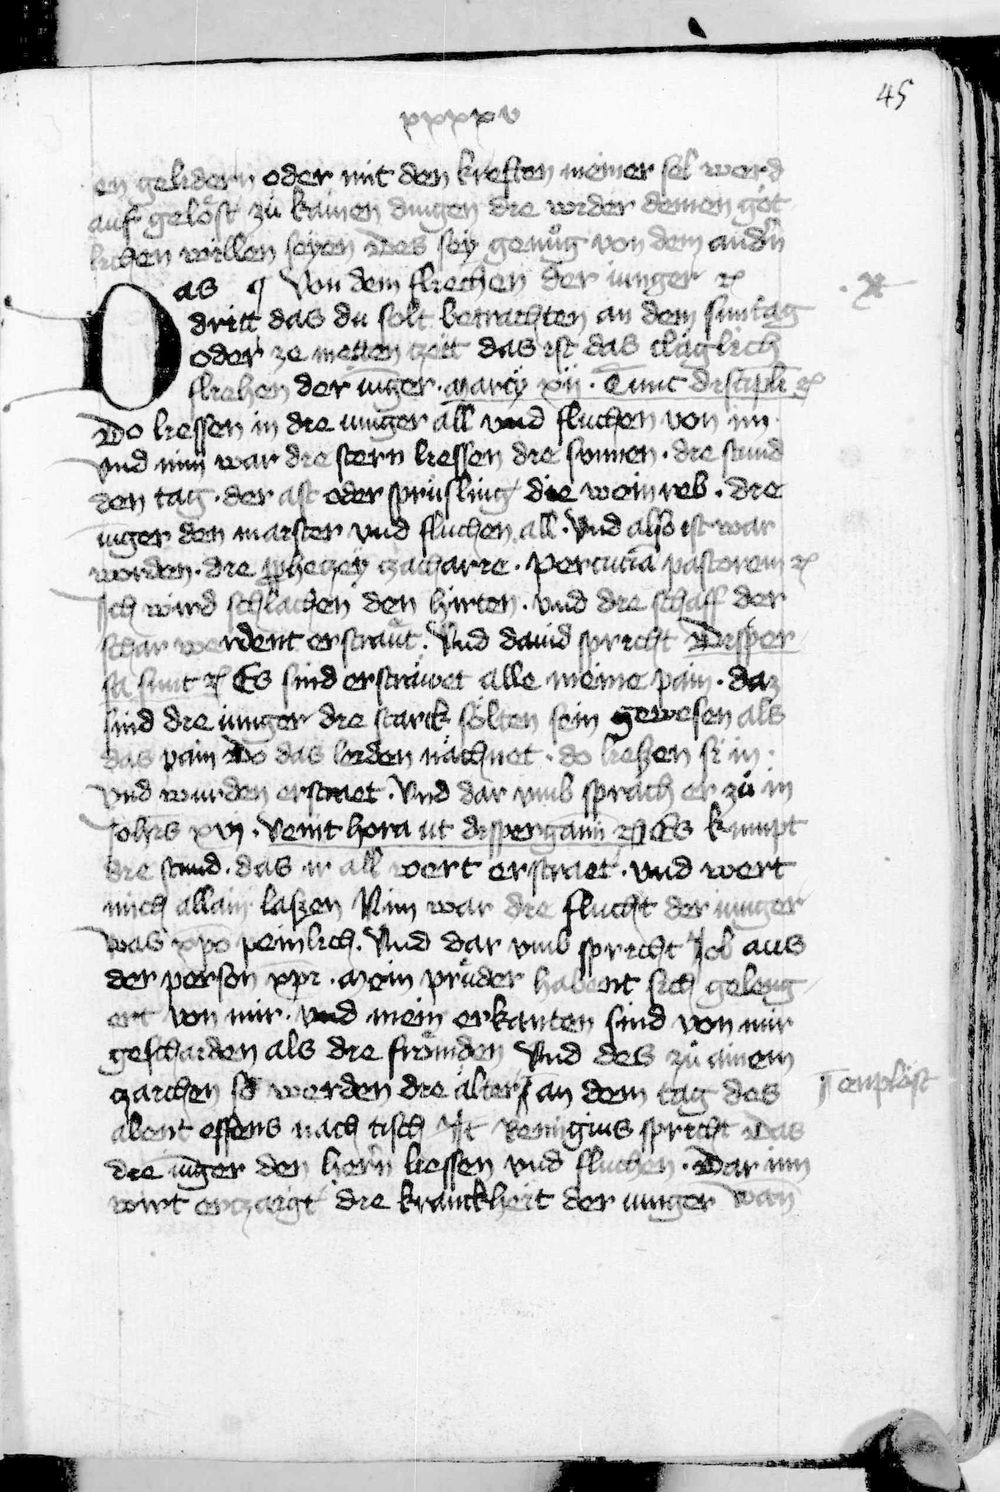 45
xxxxv
en gelidern oder mit den kreften meiner sel werd
auf gelöst zů kainen dingen die wider deinen göt
lichen willen seyen Des sey genůg von dem andn̄
Das ¶ Von dem fliechen der iunger ꝛc
· x
dritt das du solt betrachten an dem suntag
oder ze metten zeit das ist das cläglich
fliehen der iūger · Marcy xiiij · Tunc discipli ꝛc
Do liessen in die iunger all vnd fluchen von im ·
Vnd nim war die stern liessen die sunnen · die stund
den tag · der ast oder sprüsling die weinreb · die
iūger den maister vnd fluchen all · Vnd also ist war
worden · die p̄phetzey zacharie · Percuciā pastorem ꝛc
Jch wird schlachen den hirten · vnd die schaff der
schar werdent erstraŭt · Vnd dauid spricht Disper
si sunt ꝛc Es sind erstráwet alle meine pain · daz
sind die iunger die starck sölten sein gewesen als
das pain Do das leiden nächnet · do lieszen si in ·
vnd wurden erstraet · Vnd dar vmb sprach er zů in
Joh̄is xvj · Venit hora ut dispergam̄ ꝛc Es kumpt
die stund · das ir all wert erstraet · vnd wert
mich allain laszen Nim war die flucht der iunger
was xp̄o peinlich · Vnd dar vmb spricht Job aus
der person xp̄i · Mein prüder habent sich geleng
ert von mir · vnd mein erkanten sind von mir
gescharden als die frömden Vnd des zů ainem
zaichen so werden die älter an dem tag des
enplöst
abent essens nach tisch Jt Remigius spricht Das
die iūger den hern̄ liessen vnd fluchen · Dar inn
wirt erzaigt die kranckheit der iunger wan̄